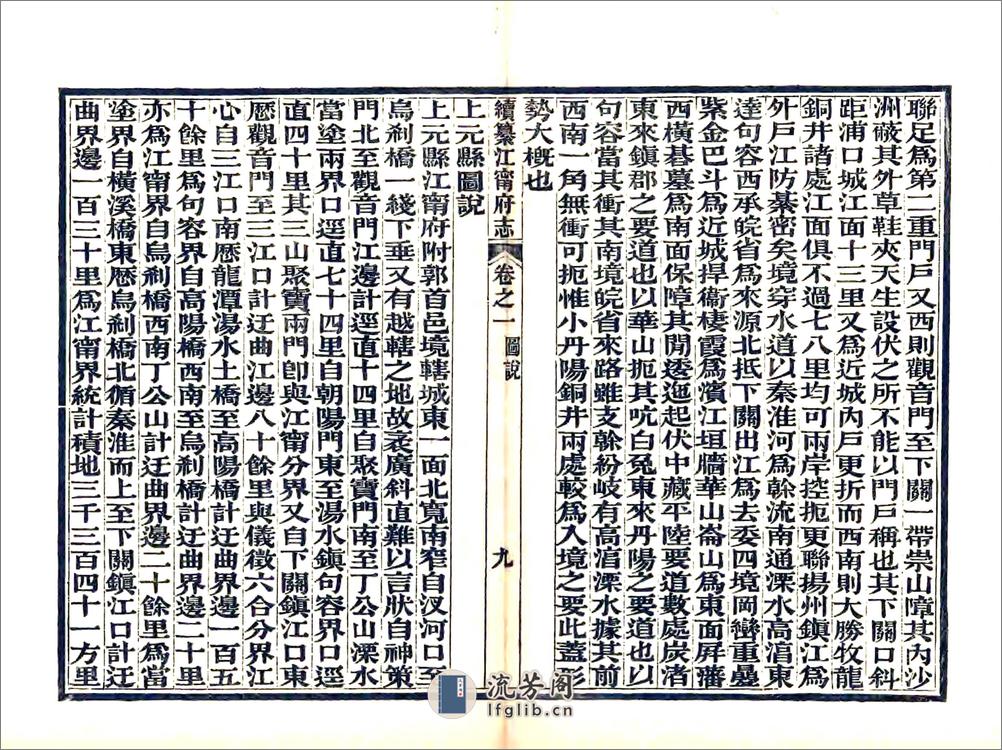 聯足爲第二重門戸又西則觀音門至下關一帶崇山障其內沙
洲蔽其外草鞋夾天生設伏之所不能以門戸稱也其下關口斜
距浦口城江面十三里又爲近城內戸更折而西南則大勝牧龍
銅井諸處江面俱不過七八里均可兩岸控扼更聯揚州鎭江爲
外戸江防綦密矣境穿水道以秦淮河爲榦流南通溧水高淳東
達句容西承皖省爲來源北抵下關出江爲去委四境岡巒重疊
紫金巴斗爲近城捍衞棲霞爲濱江垣牆華山崙山爲東面屏藩
西橫碁墓爲南面保障其閒逶迤起伏中藏平陸要道數處炭渚
東來鎭郡之要道也以華山扼其吭白兔東來丹陽之要道也以
句容當其衝其南境皖省來路雖支榦紛岐有高淳溧水據其前
西南一角無衝可扼惟小丹陽銅井兩處較爲入境之要此蓋形
勢大槪也
續纂江甯府志
卷之一
圖說
九
上元縣圖說
上元縣江甯府附郭首邑境轄城東一面北寬南窄自汊河口至
烏刹橋一綫下垂又有越轄之地故袤廣斜直難以言狀自神策
門北至觀音門江邊計逕直十四里自聚寶門南至丁公山溧水
當塗兩界口逕直七十四里自朝陽門東至湯水鎭句容界口逕
直四十里其三山聚寶兩門卽與江甯分界又自下關鎭江口東
歷觀音門至三江口計迂曲江邊八十餘里與儀徵六合分界江
心自三江口南歷龍潭湯水土橋至高陽橋計迂曲界邊一百五
十餘里爲句容界自高陽橋西南至烏刹橋計迂曲界邊二十里
亦爲江甯界自烏刹橋西南丁公山計迂曲界邊二十餘里爲當
塗界自橫溪橋東歷烏刹橋北循秦淮而上至下關鎭江口計迂
曲界邊一百三十里爲江甯界統計積地三千三百四十一方里
流芳阁
lfglib.cn